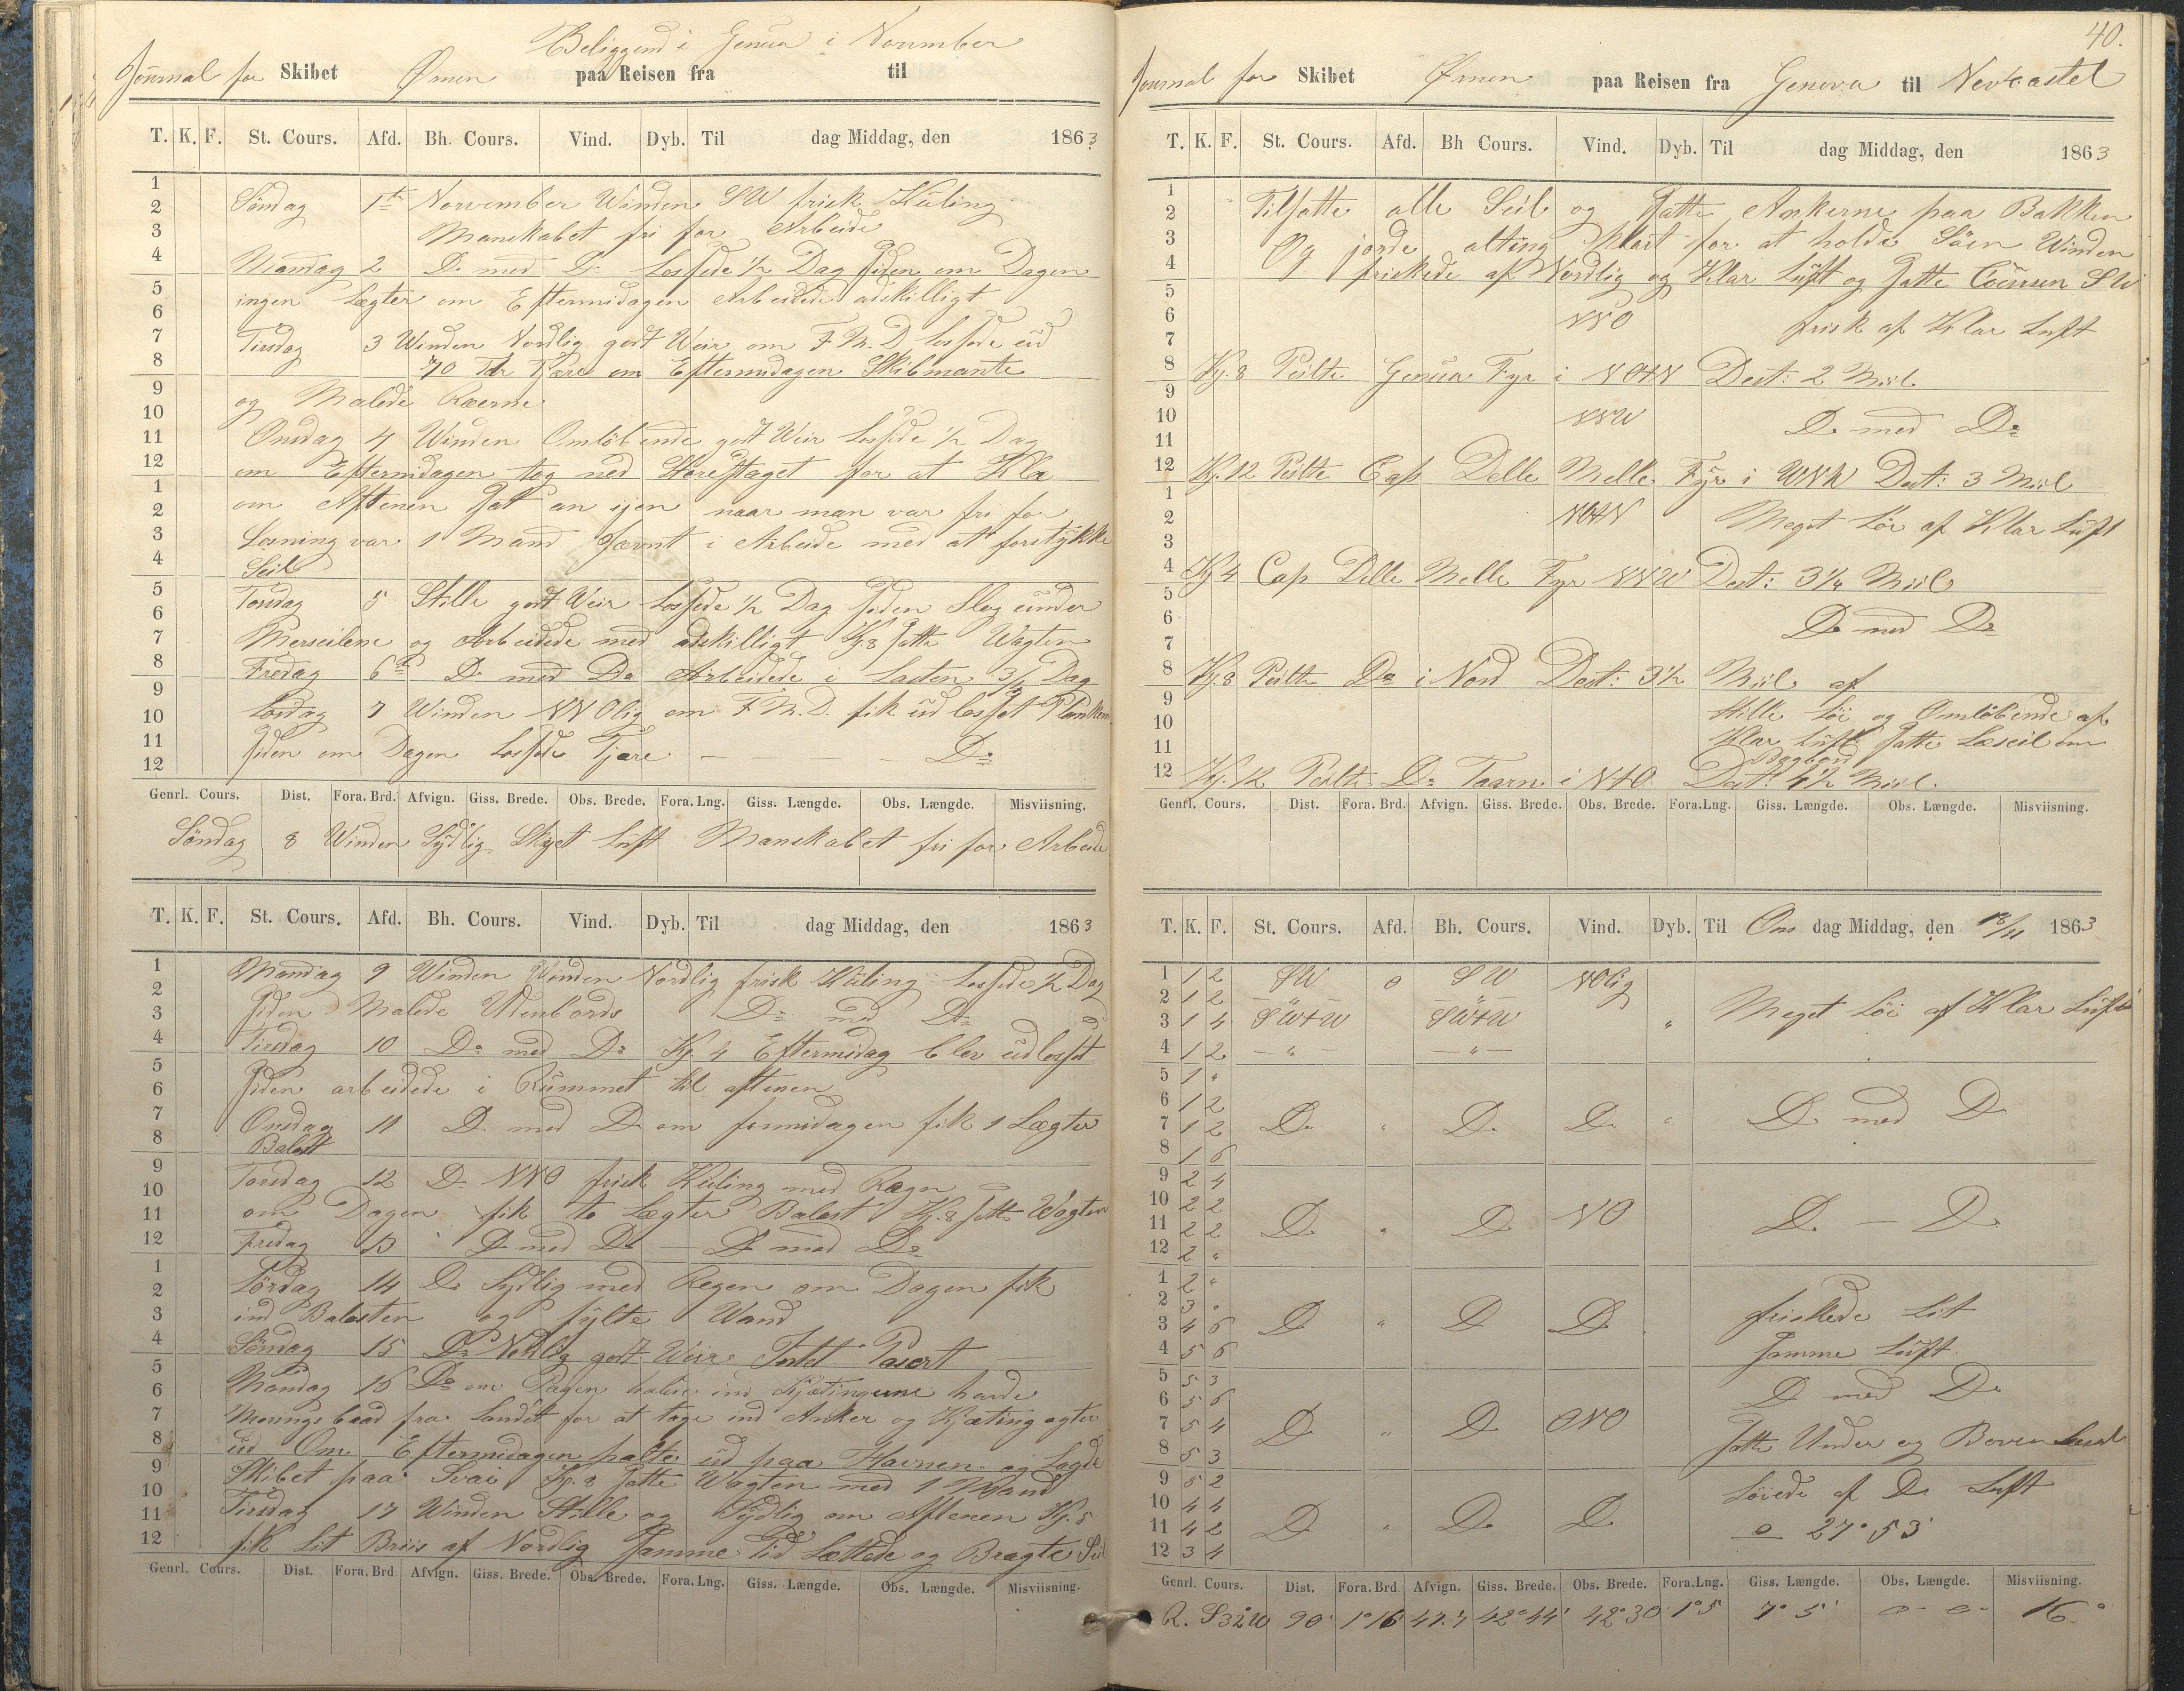 Beliggend i Genua i November
Journal for Skibet Ørnen paa Reisen fra til
T. K. F. St. Cours. Afd. Bh. Cours. Vind. Dyb. Til dag Middag, den 1863
1
2
3
4
5
6
7
8
9
10
11
12
1
2
3
4
5
6
7
8
9
10
11
12
Søndag 1te November Winden SW frisk Kuling
Manskabet fri for Arbeide
Mandag 2 Do med Do Lossede 1/2 Dag siden om Dagen
ingen Lægter om Eftermidagen Arbeidede adskilligt
Tirsdag 3 Winden Nordlig godt Weir om F.M.D lossede ud
70 Tdr Tjære om Eftermidagen Skibmante
og Malede Raerne
Onsdag 4 Winden Omløbende godt Weir Lossede 1/2 Dag
om Eftermidagen tog ned Storestaget for at Kla
om Aftenen sat an ijen naar man var fri for
Losning var 1 Mand Jævnt i Arbeide med at forstykke
Seil
Torsdag 5 Stille godt Weir Lossede 1/2 Dag siden Slog under
Merseilene og Arbeidede med adskilligt Kj. 8 satte Wagten
Fredag 6te Do med Do Arbeidede i Lasten 3/4 Dag
Lørdag 7 Winden NNOlig om F.M.D. fik ud losset Planken
siden om Dagen Lossede Tjære — — — — Do
Genrl. Cours. Dist. Fora. Brd. Afvign. Giss. Brede. Obs. Brede. Fora. Lng. Giss. Længde. Obs. Længde. Misviisning.
Søndag 8 Winden Sydlig Skyet Luft Manskabet fri for Arbeide
T. K. F. St. Cours. Afd. Bh. Cours. Vind. Dyb. Til dag Middag, den 1863
1
2
3
4
5
6
7
8
9
10
11
12
1
2
3
4
5
6
7
8
9
10
11
12
Mandag 9 Winden Winden Nordlig frisk Kuling Lossede 1/2 Dag
siden Malede Udenbords Do med Do
Tirsdag 10 Do med Do Kj. 4 Eftermidag blev udlosset
siden arbeidede i Rummet til aftenen
Onsdag 11 Do med Do om formidagen fik 1 Lægter
Balast
Torsdag 12 Do NNO frisk Kuling med Rægn
om Dagen fik to Lægter Balast Kj. 8 satte Wagten
Fredag 13 Do med Do — Do med Do
Lørdag 14 Do Sydlig med Regen om Dagen fik
ind Balasten og fylte Wand
Søndag 15 Do godt Weir
Mandag 16 Do om Dagen halte ind Kjætingerne havde
Morings baad fra Landet for at tage ind Anker og Kjæting agter
ud Om Eftermidagen halte ud paa Havnen og Lagde
Skibet paa Svai Kj. 8 satte Wagten med 1 Mand
Tirsdag 17 Winden Stille og Sydlig om Aftenen Kj. 5
fik Lit Briis af Nordlig samme tid Lættede og Bragte Seil
Genrl. Cours. Dist. Fora. Brd Afvign. Giss. Brede. Obs. Brede. Fora. Lng. Giss. Længde. Obs. Længde. Misviisning.
40.
Journal for Skibet Ørnen paa Reisen fra Genova til Newcastel
T. K. F. St. Cours. Afd. Bh Cours. Vind. Dyb. Til dag Middag, den 1863
1
2
3
4
5
6
7
8
9
10
11
12
1
2
3
4
5
6
7
8
9
10
11
12
Tilsatte alle Seil og satte Ankerne paa Bakken
Og jorde alting klart for at holde Søen Winden
friskede af Nordlig og Klar Luft og satte Coursen SW
NNO frisk af Klar Luft
Kj. 8 Peilte Genua Fyr i NOtN Dest: 2 Miil
NNW Do med Do
Kj. 12 Peilte Cap Delle Melle Fyr i WNW Dest: 3 Miil
NOtN Meget Løi af Klar Luft
Kj 4 Cap Delle Melle Fyr NNW Dest: 3 1/4 Miil
Do med Do
Kj. 8 Peilte Do i Nord Dest: 3 1/2 Miil af
Stille Løi og Omløbende af
Klar Luft satte Læseil om
Bagbord
Kj. 12 Peilte Do Taarn i NtO Dest: 4 1/2 Miil.
Genrl. Cours. Dist. Fora. Brd. Afvign. Giss. Brede. Obs. Brede. Fora. Lng. Giss. Længde. Obs. Længde. Misviisning.
T. K. F. St. Cours. Afd. Bh. Cours. Vind. Dyb. Til Ons dag Middag, den 18/11 1863
1 1 2 SW 0 SW NOlig
2 1 2 — " — — " — Meget Løi af Klar Luft
3 1 4 SWtW SWtW "
4 1 2 — " — — " —
5 1 "
6 1 2
7 1 2 Do " Do Do " Do med Do
8 1 6
9 2 4
10 2 2
11 2 2 Do " Do NO Do — Do
12 2 "
1 2 "
2 3 " friskede Lit
3 4 6 Do " Do Do
4 5 6 samme Luft
5 5 3 Do med Do
6 5 6
7 5 4 Do " Do ONO
8 5 3 satte Under og Boven
9 5 2 Løiede af Do Luft
10 4 4
11 4 2 Do " Do Do 27° 53'
12 3 4
Genrl. Cours. Dist. Fora. Brd. Afvign. Giss. Brede. Obs. Brede. Fora. Lng. Giss. Længde. Obs. Længde. Misviisning.
R. S32W 90' 1°16' 47.7 42°44' 42°30 1°5' 7° 5' 0 - 0 - 16°